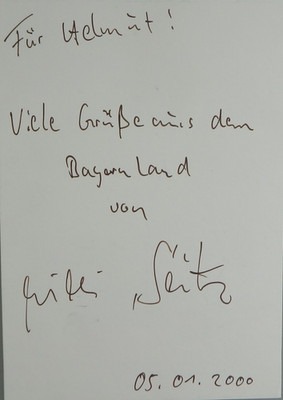 Für Helmut!
Viele Grüße aus dem
Bayernland
von
Seitz
05.01.2000